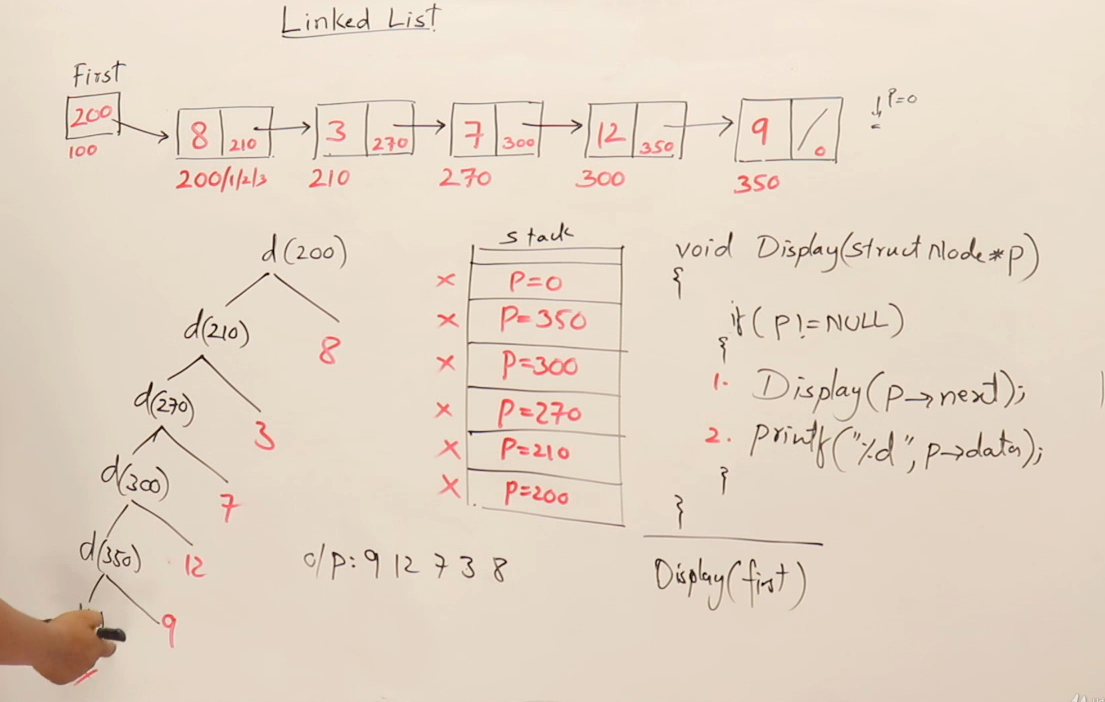 Linked List
First
200
100
8 210
200/1/2/3
3 270
210
7 300
270
12 350
300
9 0
350
P=0
d(200)
d(210)
8
d(270)
3
d(300)
7
d(350)
12
9
stack
× P=0
× P=350
× P=300
× P=270
× P=210
× P=200
o/p: 9 12 7 3 8
void Display(struct Node*p)
{
if(p!=NULL)
{
1. Display(p→next);
2. printf("%d",p→data);
}
}
Display(first)